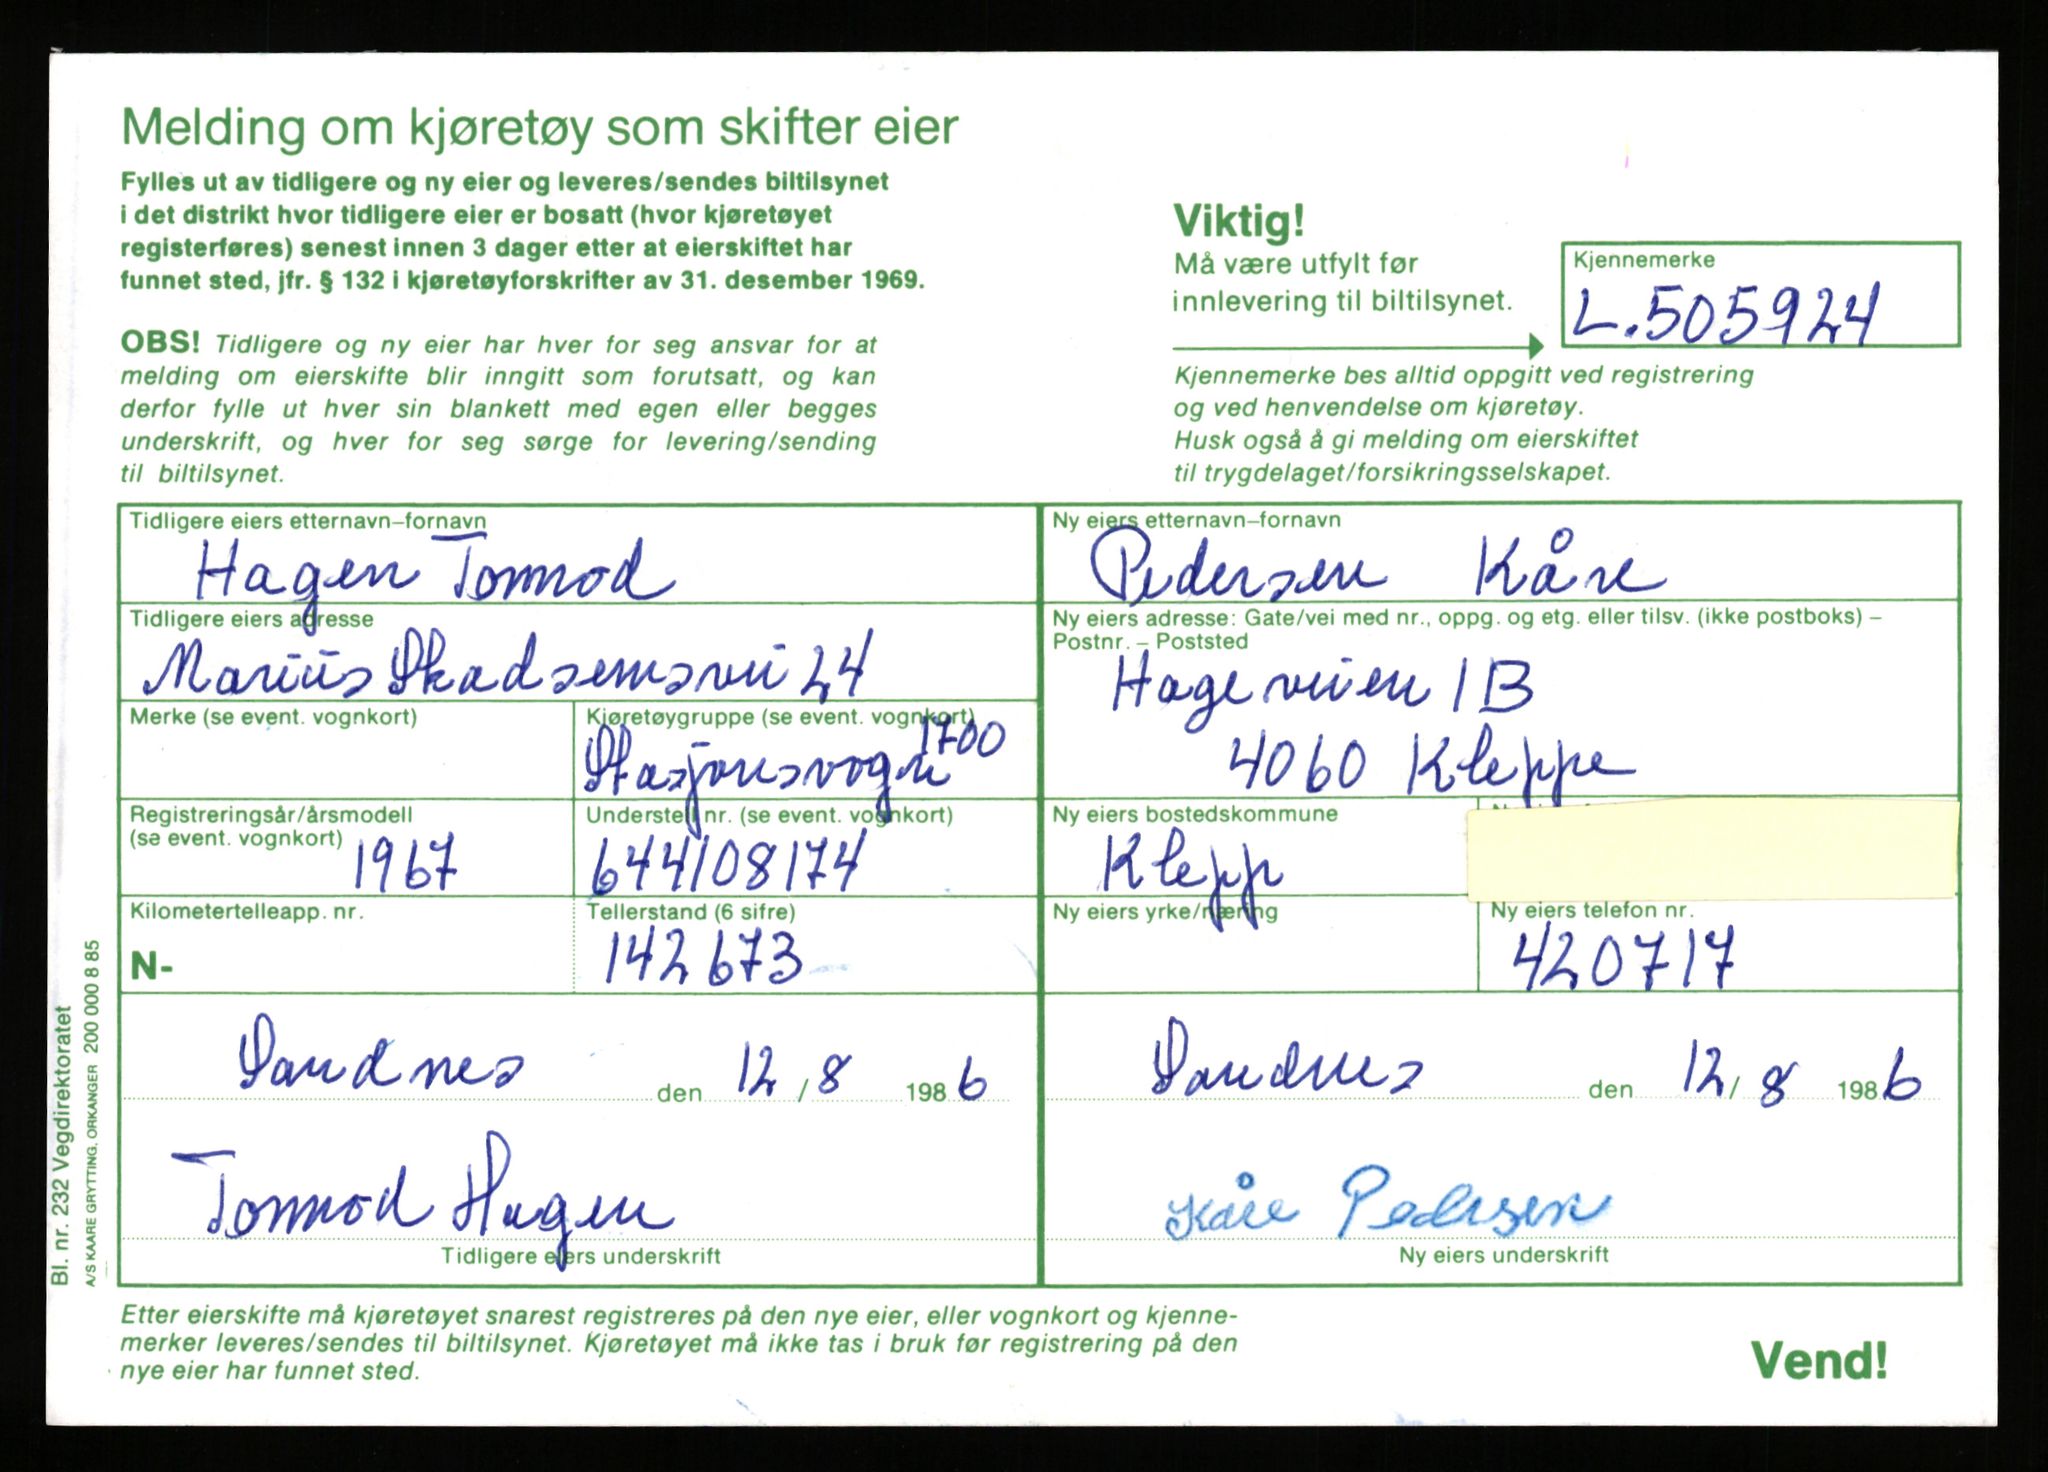 Melding om kjøretøy som skifter eier
Fylles ut av tidligere og ny eier og leveres/sendes biltilsynet
i det distrikt hvor tidligere eier er bosatt (hvor kjøretøyet
registerføres) senest innen 3 dager etter at eierskiftet har
funnet sted, jfr. § 132 i kjøretøyforskrifter av 31. desember 1969.
OBS! Tidligere og ny eier har hver for seg ansvar for at
melding om eierskifte blir inngitt som forutsatt, og kan
derfor fylle ut hver sin blankett med egen eller begges
underskrift, og hver for seg sørge for levering/sending
til biltilsynet.
Viktig!
Må være utfylt før
innlevering til biltilsynet.
Kjennemerke
L.505924
Kjennemerke bes alltid oppgitt ved registrering
og ved henvendelse om kjøretøy.
Husk også å gi melding om eierskiftet
til trygdelaget/forsikringsselskapet.
Tidligere eiers etternavn–fornavn
Hagen Tormod
Tidligere eiers adresse
Marius Skadsemsvei 24
Merke (se event. vognkort)
Kjøretøygruppe (se event. vognkort)
1700
Stasjonsvogn
Registreringsår/årsmodell
(se event. vognkort)
1967
Understell nr. (se event. vognkort)
644108174
Kilometertelleapp. nr.
N-
Tellerstand (6 sifre)
142673
Sandnes den 12/8 1986
Tormod Hagen
Tidligere eiers underskrift
Ny eiers etternavn–fornavn
Pedersen Kåre
Ny eiers adresse: Gate/vei med nr., oppg. og etg. eller tilsv. (ikke postboks) –
Postnr. – Poststed
Hageveien 1B
4060 Kleppe
Ny eiers bostedskommune
Klepp
Ny eiers yrke/næring
Ny eiers telefon nr.
420717
Sandnes den 12/8 1986
Kåre Pedersen
Ny eiers underskrift
Etter eierskifte må kjøretøyet snarest registreres på den nye eier, eller vognkort og kjenne-
merker leveres/sendes til biltilsynet. Kjøretøyet må ikke tas i bruk før registrering på den
nye eier har funnet sted.
Vend!
Bl. nr. 232 Vegdirektoratet
A/S KAARE GRYTTING, ORKANGER 200 000 8 85